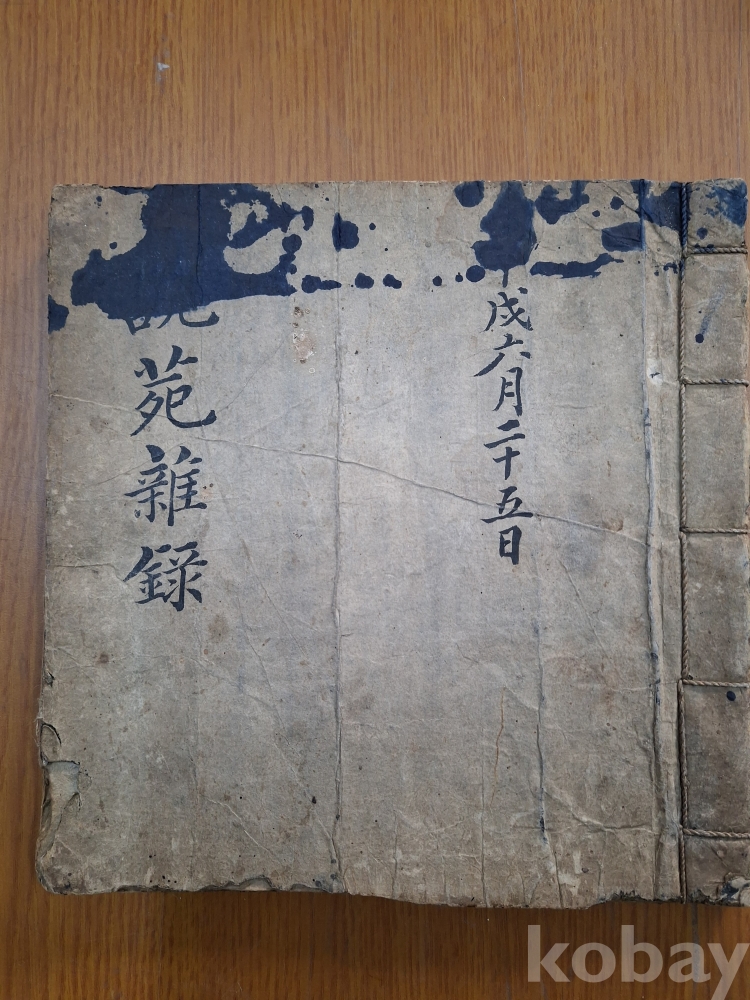 戌六月二十五日
說苑雜錄
kobay